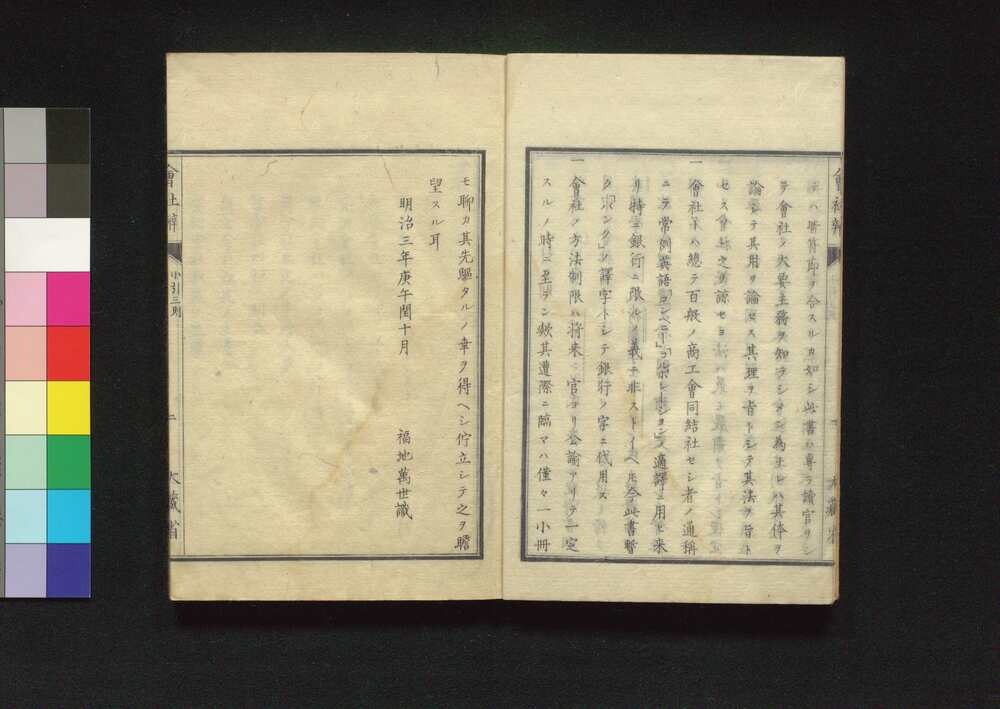 テ會社ノ大要主務ヲ知ラシメン為ナレハ其体ヲ
論シテ其用ヲ論セス其理ヲ旨トシテ其法ヲ旨ト
セス
之ヲ諒セヨ
一 會社トハ總テ百般ノ商工會同結社セシ者ノ通稱
ニテ常例英語「コンペニー」「コルポレーション」ノ適譯ニ用ヒ来
リ特ニ銀行ニ限ルノ義ニ非ストイヘ𪜈今此書暫
ク「バンク」ノ譯字トシテ銀行ノ字ニ代用ス
一 會社ノ方法制限ハ将来官ヨリ公諭アリテ一定
スルノ時ニ至テン歟其遭際ニ臨マハ僅々一小冊
會社辨
大藏省
モ聊カ其先驅タルノ幸ヲ得ヘシ佇立シテ之ヲ瞻
望スル耳
明治三年庚午閏十月
福地萬世識
會社辨
小引三則
二
大藏省